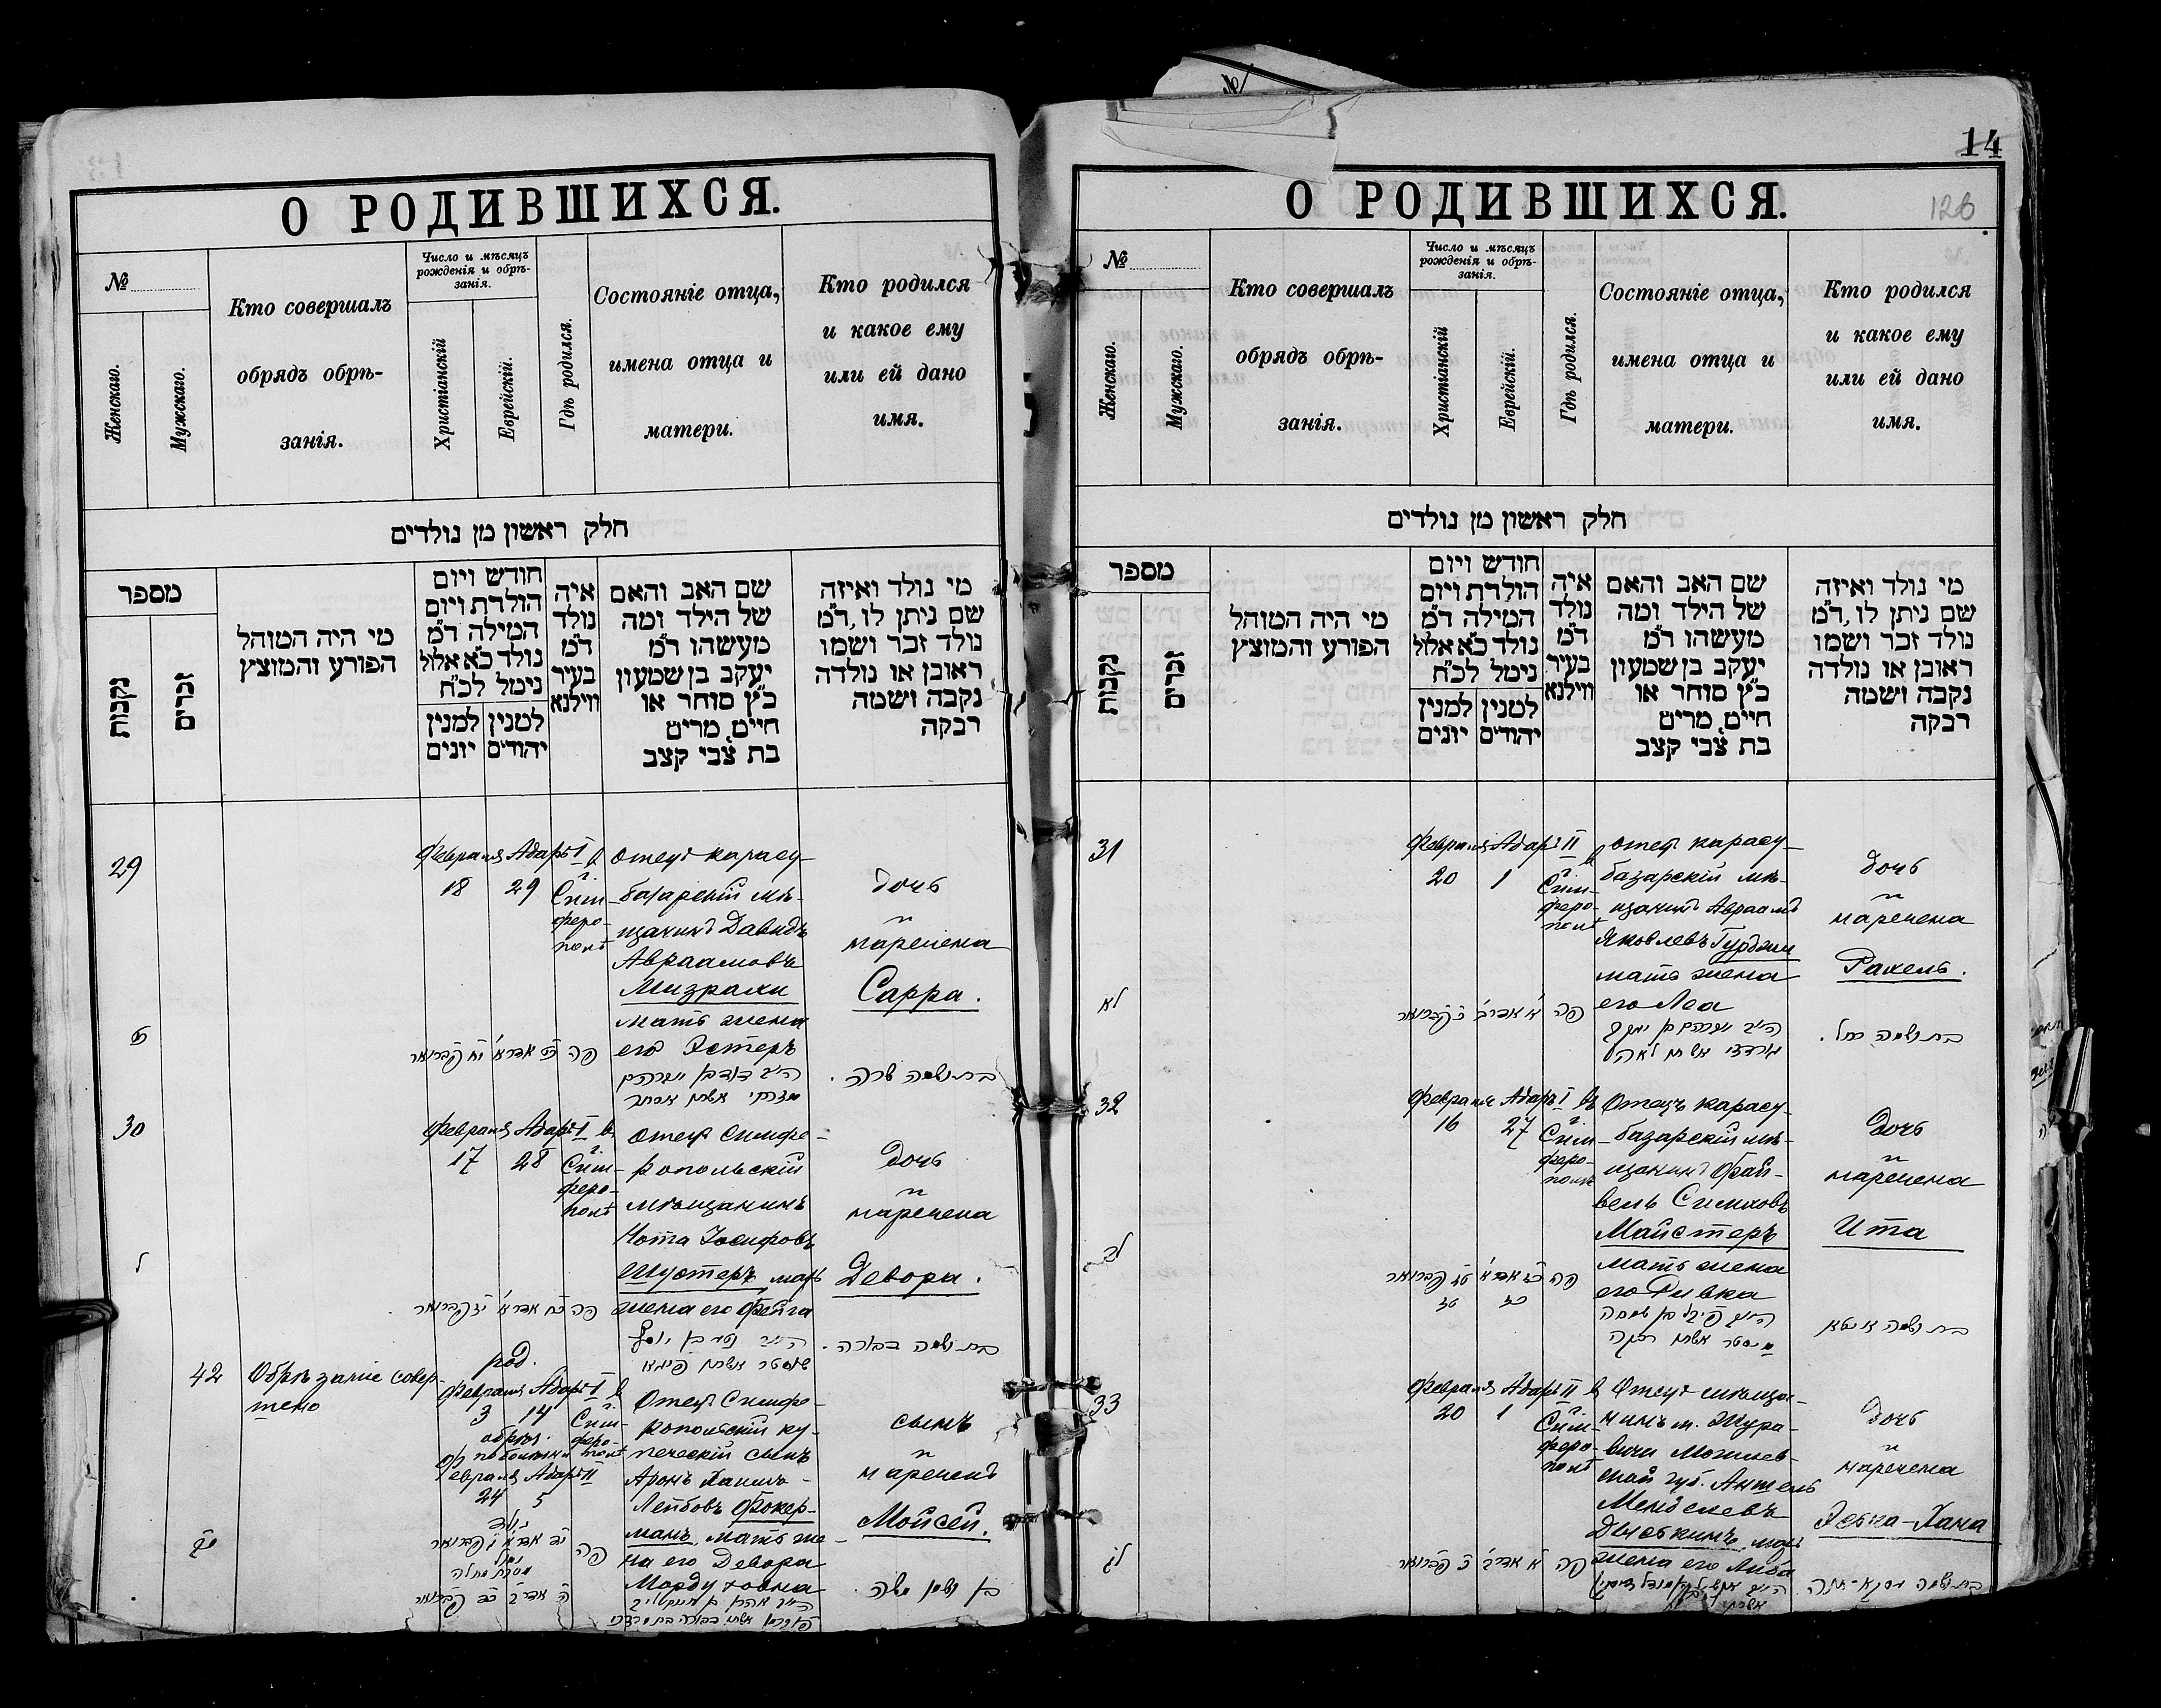 О РОДИВШИХСЯ.
№
Женскаго.
Мужскаго.
Кто совершалъ
обрядъ обрѣ-
занія.
Число и мѣсяцъ
рожденія и обрѣ-
занія.
Христіанскій
Еврейскій.
Гдѣ родился.
Состояніе отца,
имена отца и
матери.
Кто родился
и какое ему
или ей дано
имя.
חלק ראשון מן נולדים
מספר
נקבות
זכרים
מי היה המוהל
הפורע והמוצץ
חודש ויום
הולדת ויום
המילה ד״מ
נולד כ״א אלול
נימל לכ״ח
למנין
יונים
למנין
יהודים
איה
נולד
ד״מ
בעיר
ווילנא
שם האב והאם
של הילד ומה
מעשהו ד״מ
יעקב בן שמעון
כ״ץ סוחר או
חיים, מרים
בת צבי קצב
מי נולד ואיזה
שם ניתן לו, ד״מ
נולד זכר ושמו
ראובן או נולדה
נקבה ושמה
רבקה
29
Февраля
18
Адаръ I
29
в г.
Сим-
феро-
полѣ
отецъ карасу-
базарскій мѣ-
щанинъ Давидъ
Авраамовъ
Мизрахи
мать жена
его Эстеръ
дочь
и
наречена
Сарра.
פה
בת ושמה שרה.
30
Февраля
17
Адаръ I
28
в г.
Сим-
феро-
полѣ
отецъ симфе-
ропольскій
мѣщанинъ
Нота Іосифовъ
Шустеръ, мать
жена его Фейга
дочь
и
наречена
Девора.
ל
פה
בת ושמה דבורה.
42
Обрѣзаніе совер-
шено
род.
Февраля
3
Адаръ I
14
обрѣз.
по болѣзни
Февраля
24
Адаръ II
5
в г.
Сим-
феро-
полѣ
Отецъ симфе-
ропольскій ку-
печескій сынъ
Аронъ
Лейбовъ Фокер-
манъ, мать же-
на его Девора
Мордуховна
сынъ
и
нареченъ
Мойсей.
מב
פה
בן ושמו משה.
14
126
О РОДИВШИХСЯ.
№
Женскаго.
Мужскаго.
Кто совершалъ
обрядъ обрѣ-
занія.
Число и мѣсяцъ
рожденія и обрѣ-
занія.
Христіанскій
Еврейскій.
Гдѣ родился.
Состояніе отца,
имена отца и
матери.
Кто родился
и какое ему
или ей дано
имя.
חלק ראשון מן נולדים
מספר
נקבות
זכרים
מי היה המוהל
הפורע והמוצץ
חודש ויום
הולדת ויום
המילה ד״מ
נולד כ״א אלול
נימל לכ״ח
למנין
יונים
למנין
יהודים
איה
נולד
ד״מ
בעיר
ווילנא
שם האב והאם
של הילד ומה
מעשהו ד״מ
יעקב בן שמעון
כ״ץ סוחר או
חיים, מרים
בת צבי קצב
מי נולד ואיזה
שם ניתן לו, ד״מ
נולד זכר ושמו
ראובן או נולדה
נקבה ושמה
רבקה
31
Февраля
20
Адаръ II
1
в г.
Сим-
феро-
полѣ
отецъ карасу-
базарскій мѣ-
щанинъ Авраамъ
Яковлевъ Гурджи
мать жена
его Леа
дочь
и
наречена
Рахель.
לא
פה
בת ושמה רחל.
32
Февраля
16
Адаръ I
27
въ г.
Сим-
феро-
полѣ
Отецъ карасу-
базарскій мѣ-
щанинъ Фай-
вель Симховъ
Майстеръ
мать жена
его Ривка
дочь
и
наречена
Ита
לב
פה
בת ושמה איטא
33
Февраля
20
Адаръ II
1
в г.
Сим-
феро-
полѣ
Отецъ мѣща-
нинъ м. Жура-
вичи Могилев-
ской губ. Аншель
Менделевъ
Дыскинъ, мать
жена его Либа
дочь
и
наречена
לג
פה